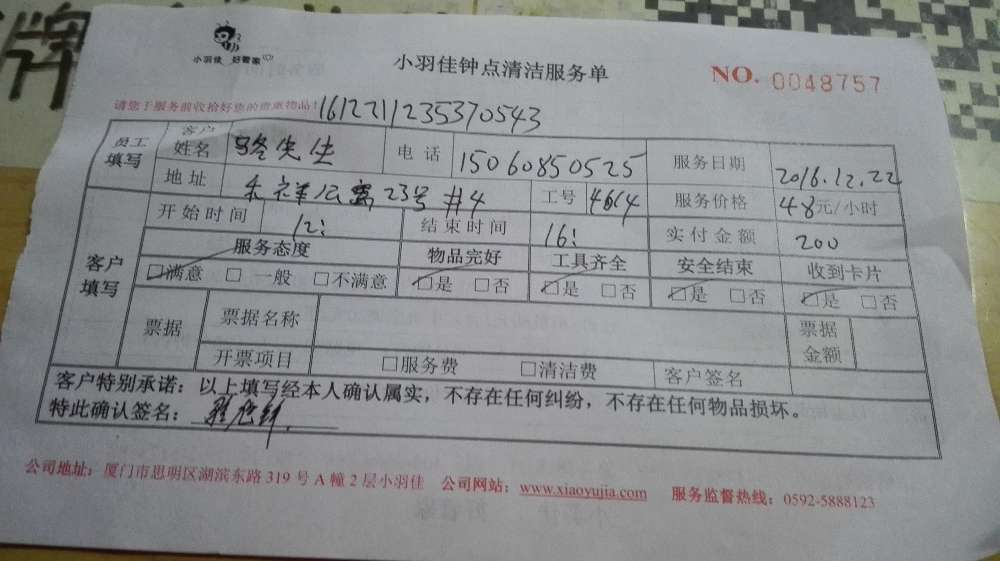 小羽佳 好管家
小羽佳钟点清洁服务单
NO. 0048757
请您于服务前收拾好您的贵重物品！
161221123537​0543
员工填写 客户姓名 骆先生 电话 15060850525 服务日期 2016.12.22
地址 禾祥公寓23号#4 工号 4614 服务价格 48元/小时
客户填写 开始时间 12: 结束时间 16: 实付金额 200
服务态度 物品完好 工具齐全 安全结束 收到卡片
□满意 □一般 □不满意 □是 □否 □是 □否 □是 □否 □是 □否
票据 票据名称 票据金额
开票项目 □服务费 □清洁费 客户签名
客户特别承诺：以上填写经本人确认属实，不存在任何纠纷，不存在任何物品损坏。
特此确认签名：
公司地址：厦门市思明区湖滨东路319号A幢2层小羽佳 公司网站：www.xiaoyujia.com 服务监督热线：0592-5888123